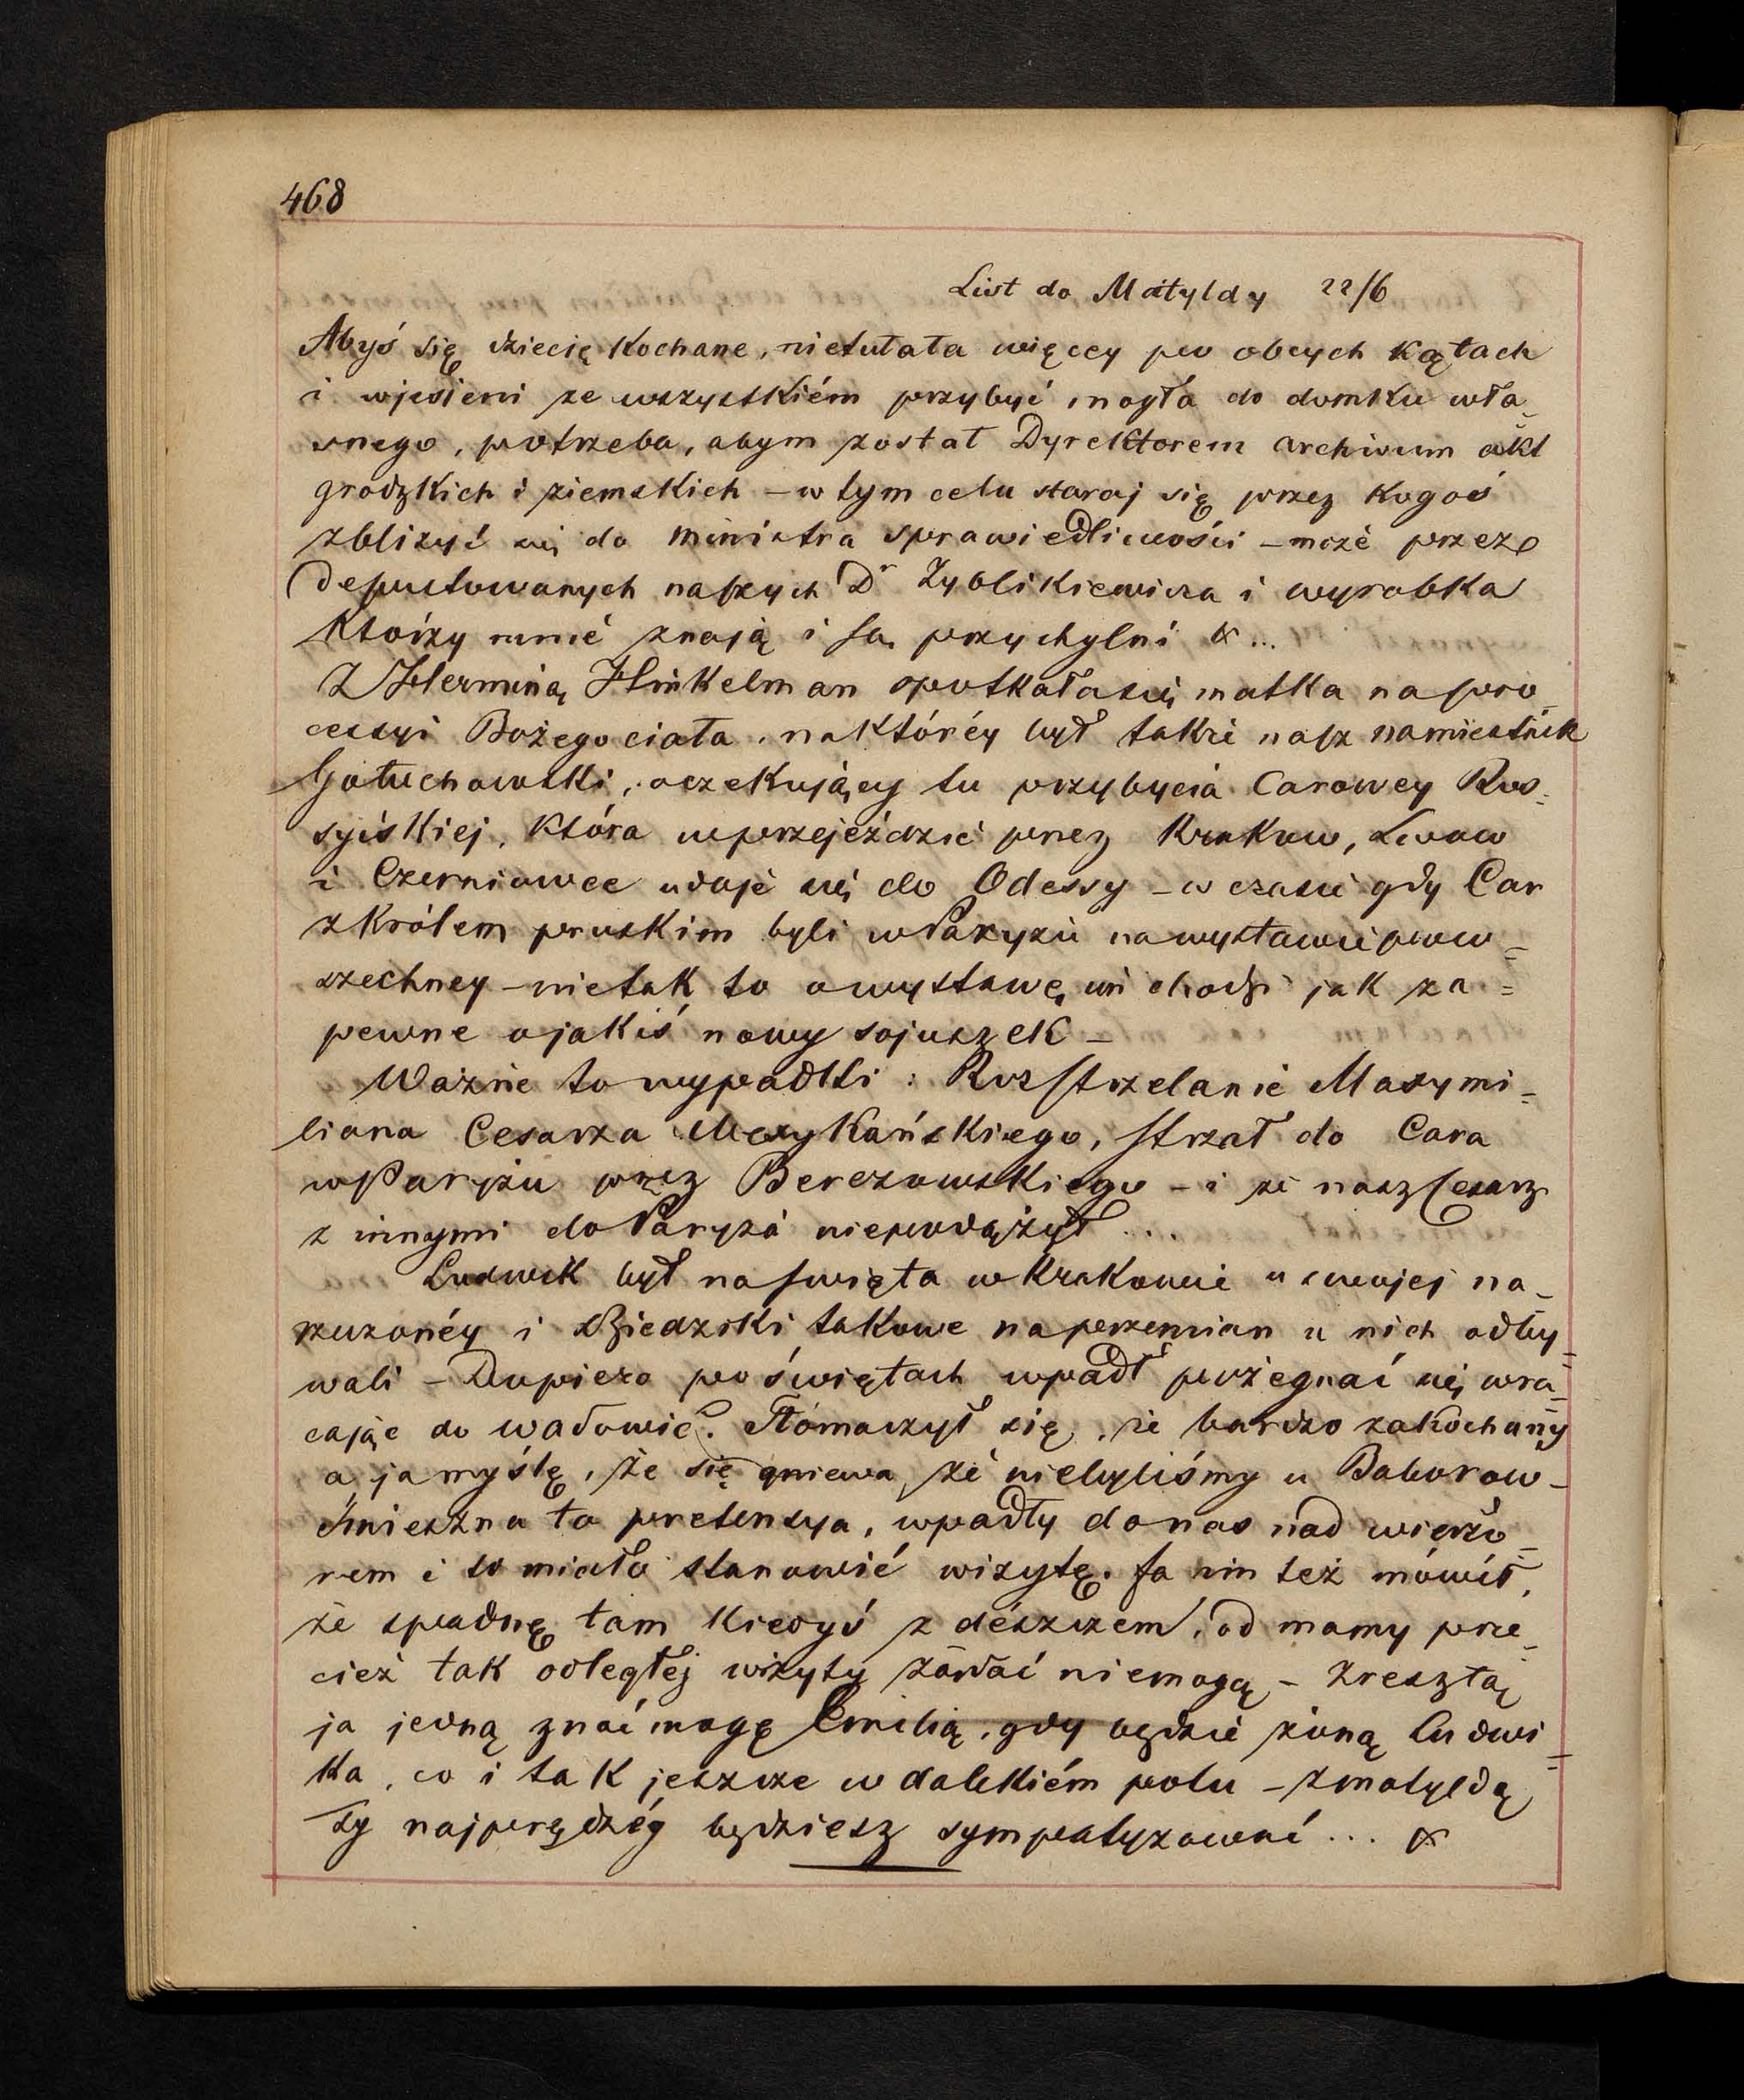 468
List do Matyldy 22/6
Abyś się dziecię Kochane, nietułała więcey po obcych kątach
i wjesieni ze wszystkiém przybyć mogła do domku wła-
snego, potrzeba, abym został Dyrektorem archiwum akt
grodzkich i ziemskich – w tym celu staraj się przez kogoś
zbliżyć się do ministra sprawiedliwości – może przez
deputowanych naszych Dr Zyblikiewicza i wyrobka
którzy mnie znają i są przychylni &...
Z Herminą Hinkelman spotkała się matka na pro-
cessyi Bożego ciała, na któréy był także nasz namiestnik
Gołuchowski, oczekujący tu przybycia Carowey Ros-
syiskiej, która w przejeździe przez Krakow, Lwow
i Czerniowce udaje się do Odessy – w czasie gdy Car
z Królem pruskim byli w Paryżu na wystawie pow-
szechney – nietak to o wystawę im chodzi jak za=
pewne o jakiś nowy sojuszek –
Ważne to wypadki: Rozstrzelanie Maxymi=
liana Cesarza Mexykańskiego, strzał do Cara
w Paryżu przez Berezowskiego – i że nasz Cesarz
z innymi do Paryża niepodążył ...
Ludwik był na święta w Krakowie u swojej na-
rzuzonéy i Dziedzicki takowe naprzemian u nich odby=
wali – Dopiero po świętach wpadł pożegnać się wra=
cając do Wadowic. Tłómaczył się, że bardzo zakochany
a ja myślę, że się gniewa, że niebyliśmy u Baborow-
śmieszna to pretensya, wpadły do nas nad wieczo-
rem i to miało stanowić wizytę. Ja im też mówił,
że spadnę tam kiedyś z deszczem, od mamy prze-
cież tak odległej wizyty żądać niemogą – Zresztą
ja jedną znać mogę Emilią, gdy będzie żoną Ludwi=
ka, co i tak jeszcze w dalekiém polu – z Matyldą
Ty najprędzéy będziesz sympatyzować ... &